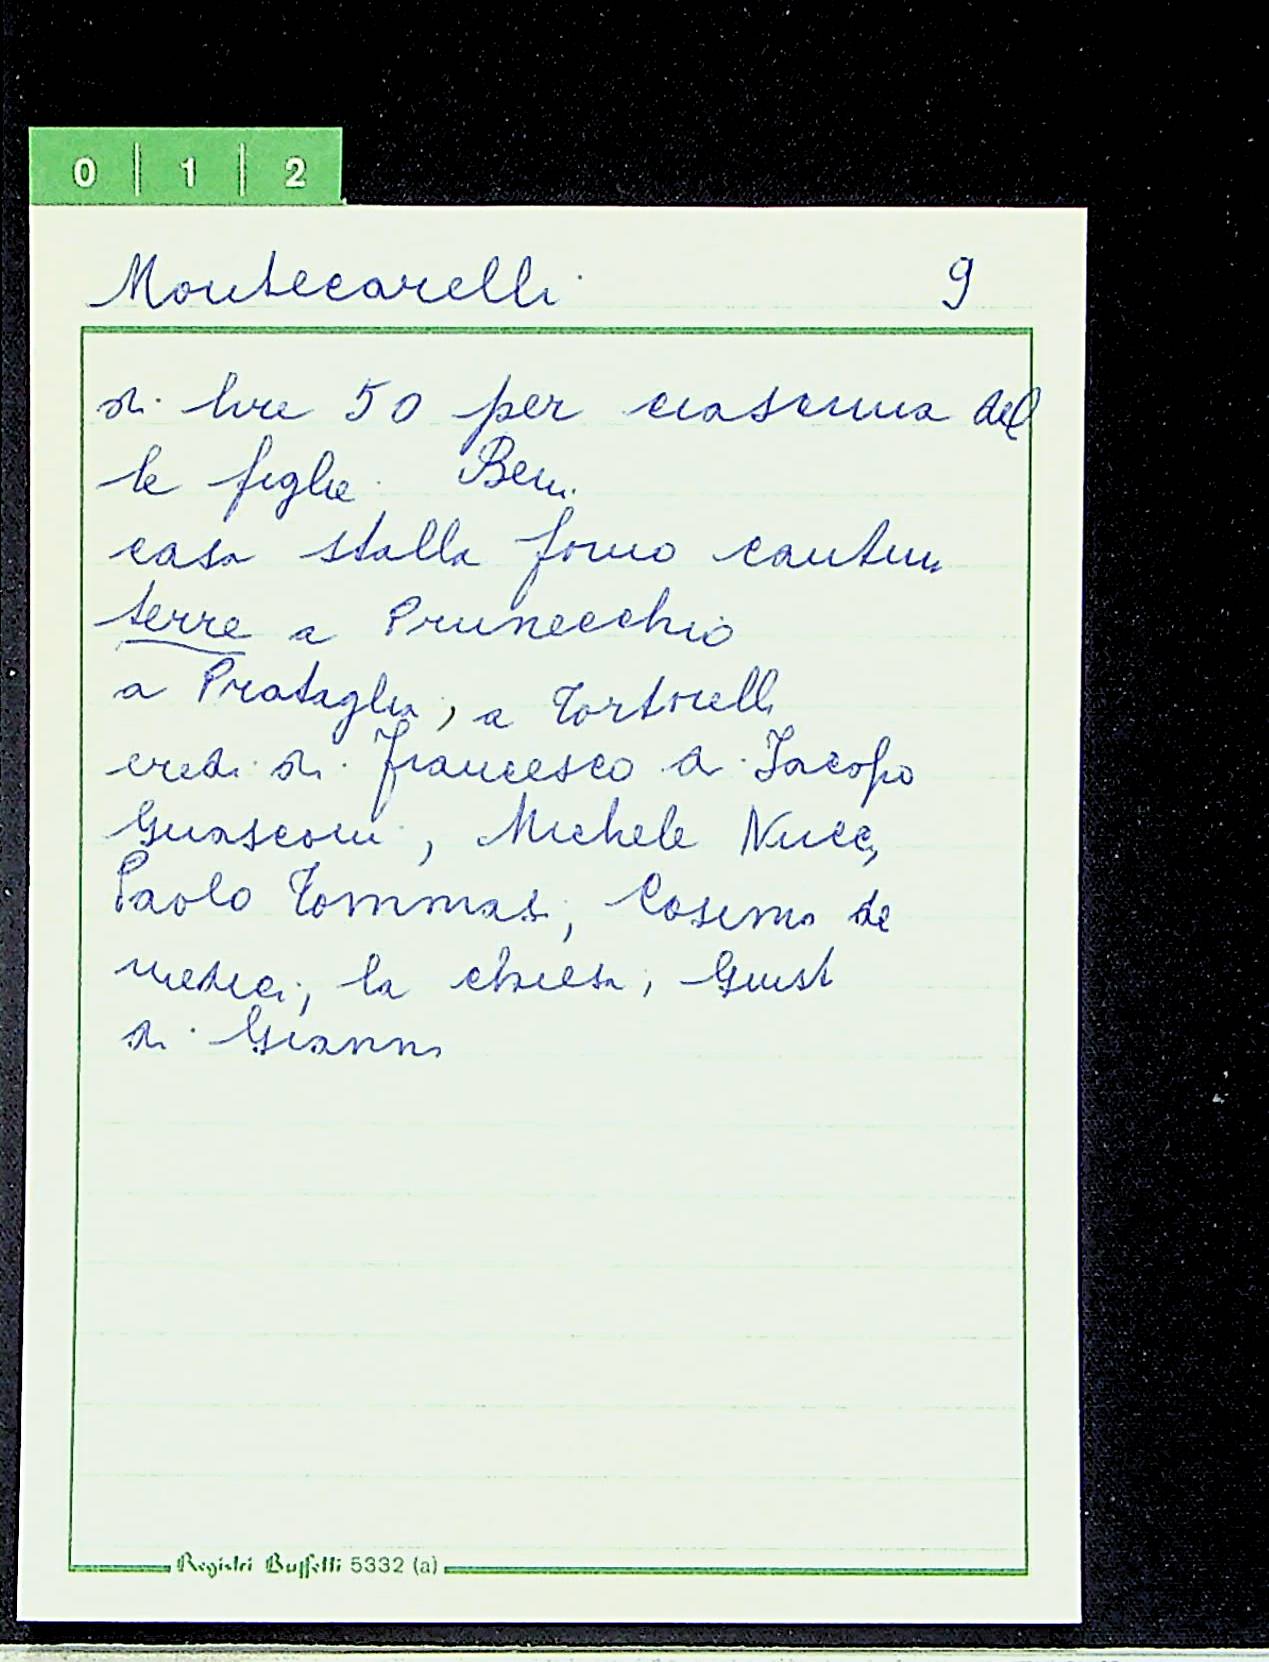 0 | 1 | 2
Montecarelli 9
di lire 50 per ciascuna del
le figlie. Beni
casa stalla forno cantina
terre a Prunecchio
a Prataglia, a Tortorelli
eredi di Francesco di Jacopo
Guasconi, Michele Nucci,
Paolo Tommasi, Cosimo de
medici, la chiesa, Giusto
di Gianni
Registri Buffetti 5332 (a)